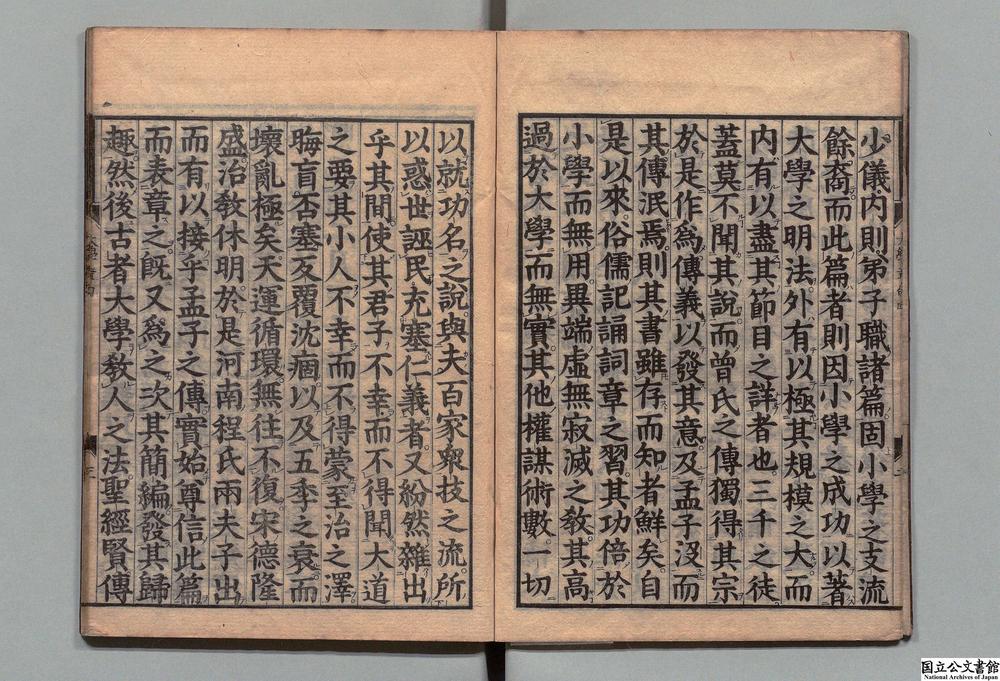 少儀內則弟子職諸篇固小學之支流
餘裔而此篇者則因小學之成功以著
大學之明法外有以極其規模之大而
內有以盡其節目之詳者也三千之徒
蓋莫不聞其說而曾氏之傳獨得其宗
於是作爲傳義以發其意及孟子沒而
其傳泯焉則其書雖存而知者鮮矣自
是以來俗儒記誦詞章之習其功倍於
小學而無用異端虛無寂滅之敎其高
過於大學而無實其他權謀術數一切
以就功名之說與夫百家衆技之流所
以惑世誣民充塞仁義者又紛然雜出
乎其間使其君子不幸而不得聞大道
之要其小人不幸而不得蒙至治之澤
晦盲否塞反覆沈痼以及五季之衰而
壞亂極矣天運循環無往不復宋德隆
盛治敎休明於是河南程氏兩夫子出
而有以接乎孟子之傳實始尊信此篇
而表章之旣又爲之次其簡編發其歸
趣然後古者大學敎人之法聖經賢傳
国立公文書館
National Archives of Japan